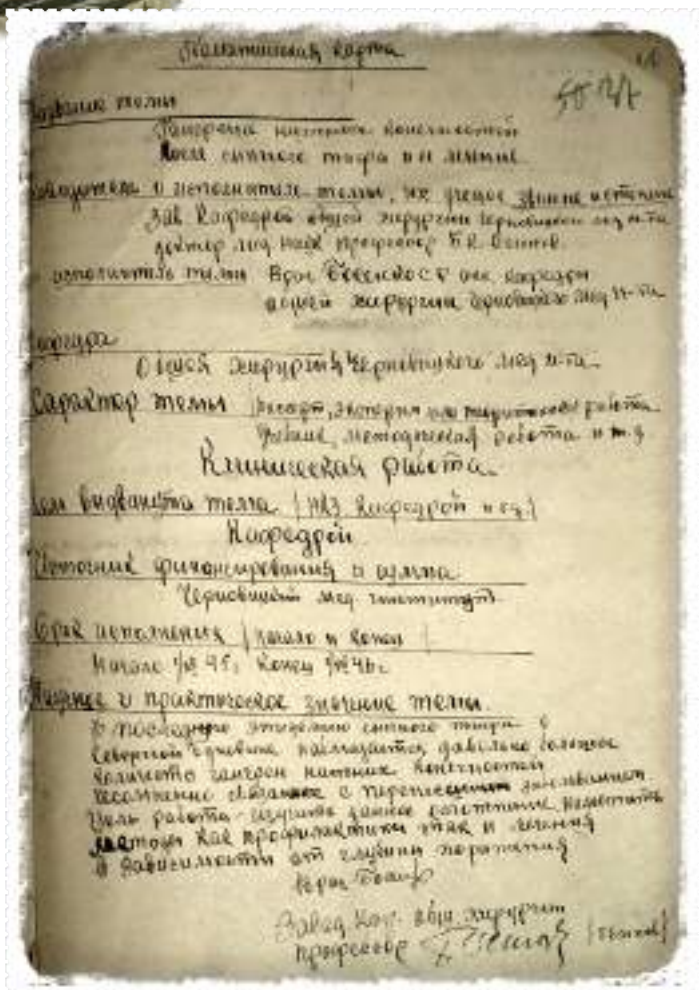 Тематическая карта
Название темы
Гангрена нижних конечностей
после сыпного тифа и ее лечение
Руководитель и исполнитель темы, их ученое звание и степень
Зав. Кафедрой общей хирургии Черновицкого мед. ин-та
доктор мед. наук профессор
исполнитель темы Врач кафедры
общей хирургии Черновицкого мед. ин-та
Кафедра
Общей хирургии Черновицкого мед. ин-та
Характер темы работа
работа и т.д.
Клиническая работа
Кем выдвинута тема (НКЗ Кафедрой и др.)
Кафедрой
Источник финансирования и сумма
Черновицкий мед. институт
Срок исполнения (начало и конец)
Начало 45 г. Конец 46 г.
Научное и практическое значение темы.
В последнюю эпидемию сыпного тифа в
Северной Буковине наблюдается довольно большое
количество гангрен нижних конечностей
несомненно связанное с перенесенным заболеванием
Цель работы изучить данное состояние наметить
методы как профилактики так и лечения
в зависимости от глубины поражения
Врач
Завед. Каф. общ. хирургии
профессор